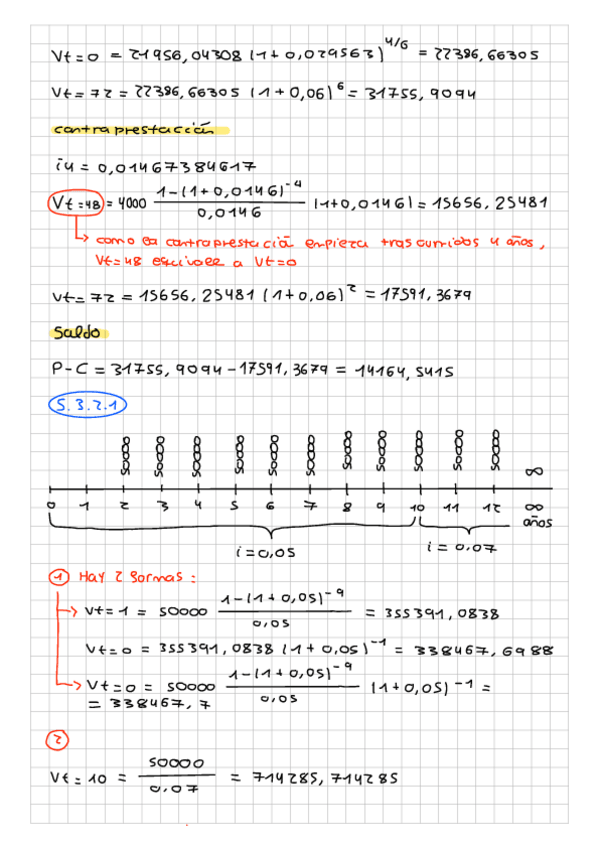 Vt=0 = 21956,04308 (1+0,029563)^4/6 = 22386,66305
Vt=72 = 22386,66305 (1+0,06)^6 = 31755,9094
contraprestación
i4 = 0,01467384617
Vt=48 = 4000 1-(1+0,0146)^-4 / 0,0146 (1+0,0146) = 15656,25481
como la contraprestación empieza trascurridos 4 años,
Vt=48 equivale a Vt=0
Vt=72 = 15656,25481 (1+0,06)^2 = 17591,3679
Saldo
P-C = 31755,9094-17591,3679 = 14164,5415
5.3.2.1
50000 50000 50000 50000 50000 50000 50000 50000 50000 50000 50000 ∞
0 1 2 3 4 5 6 7 8 9 10 11 12 ∞
años
i=0,05 i=0.07
1 Hay 2 formas:
Vt=1 = 50000 1-(1+0,05)^-9 / 0,05 = 355391,0838
Vt=0 = 355391,0838 (1+0,05)^-1 = 338467,6988
Vt=0 = 50000 1-(1+0,05)^-9 / 0,05 (1+0,05)^-1 =
= 338467,7
2
Vt=10 = 50000 / 0.07 = 714285,714285